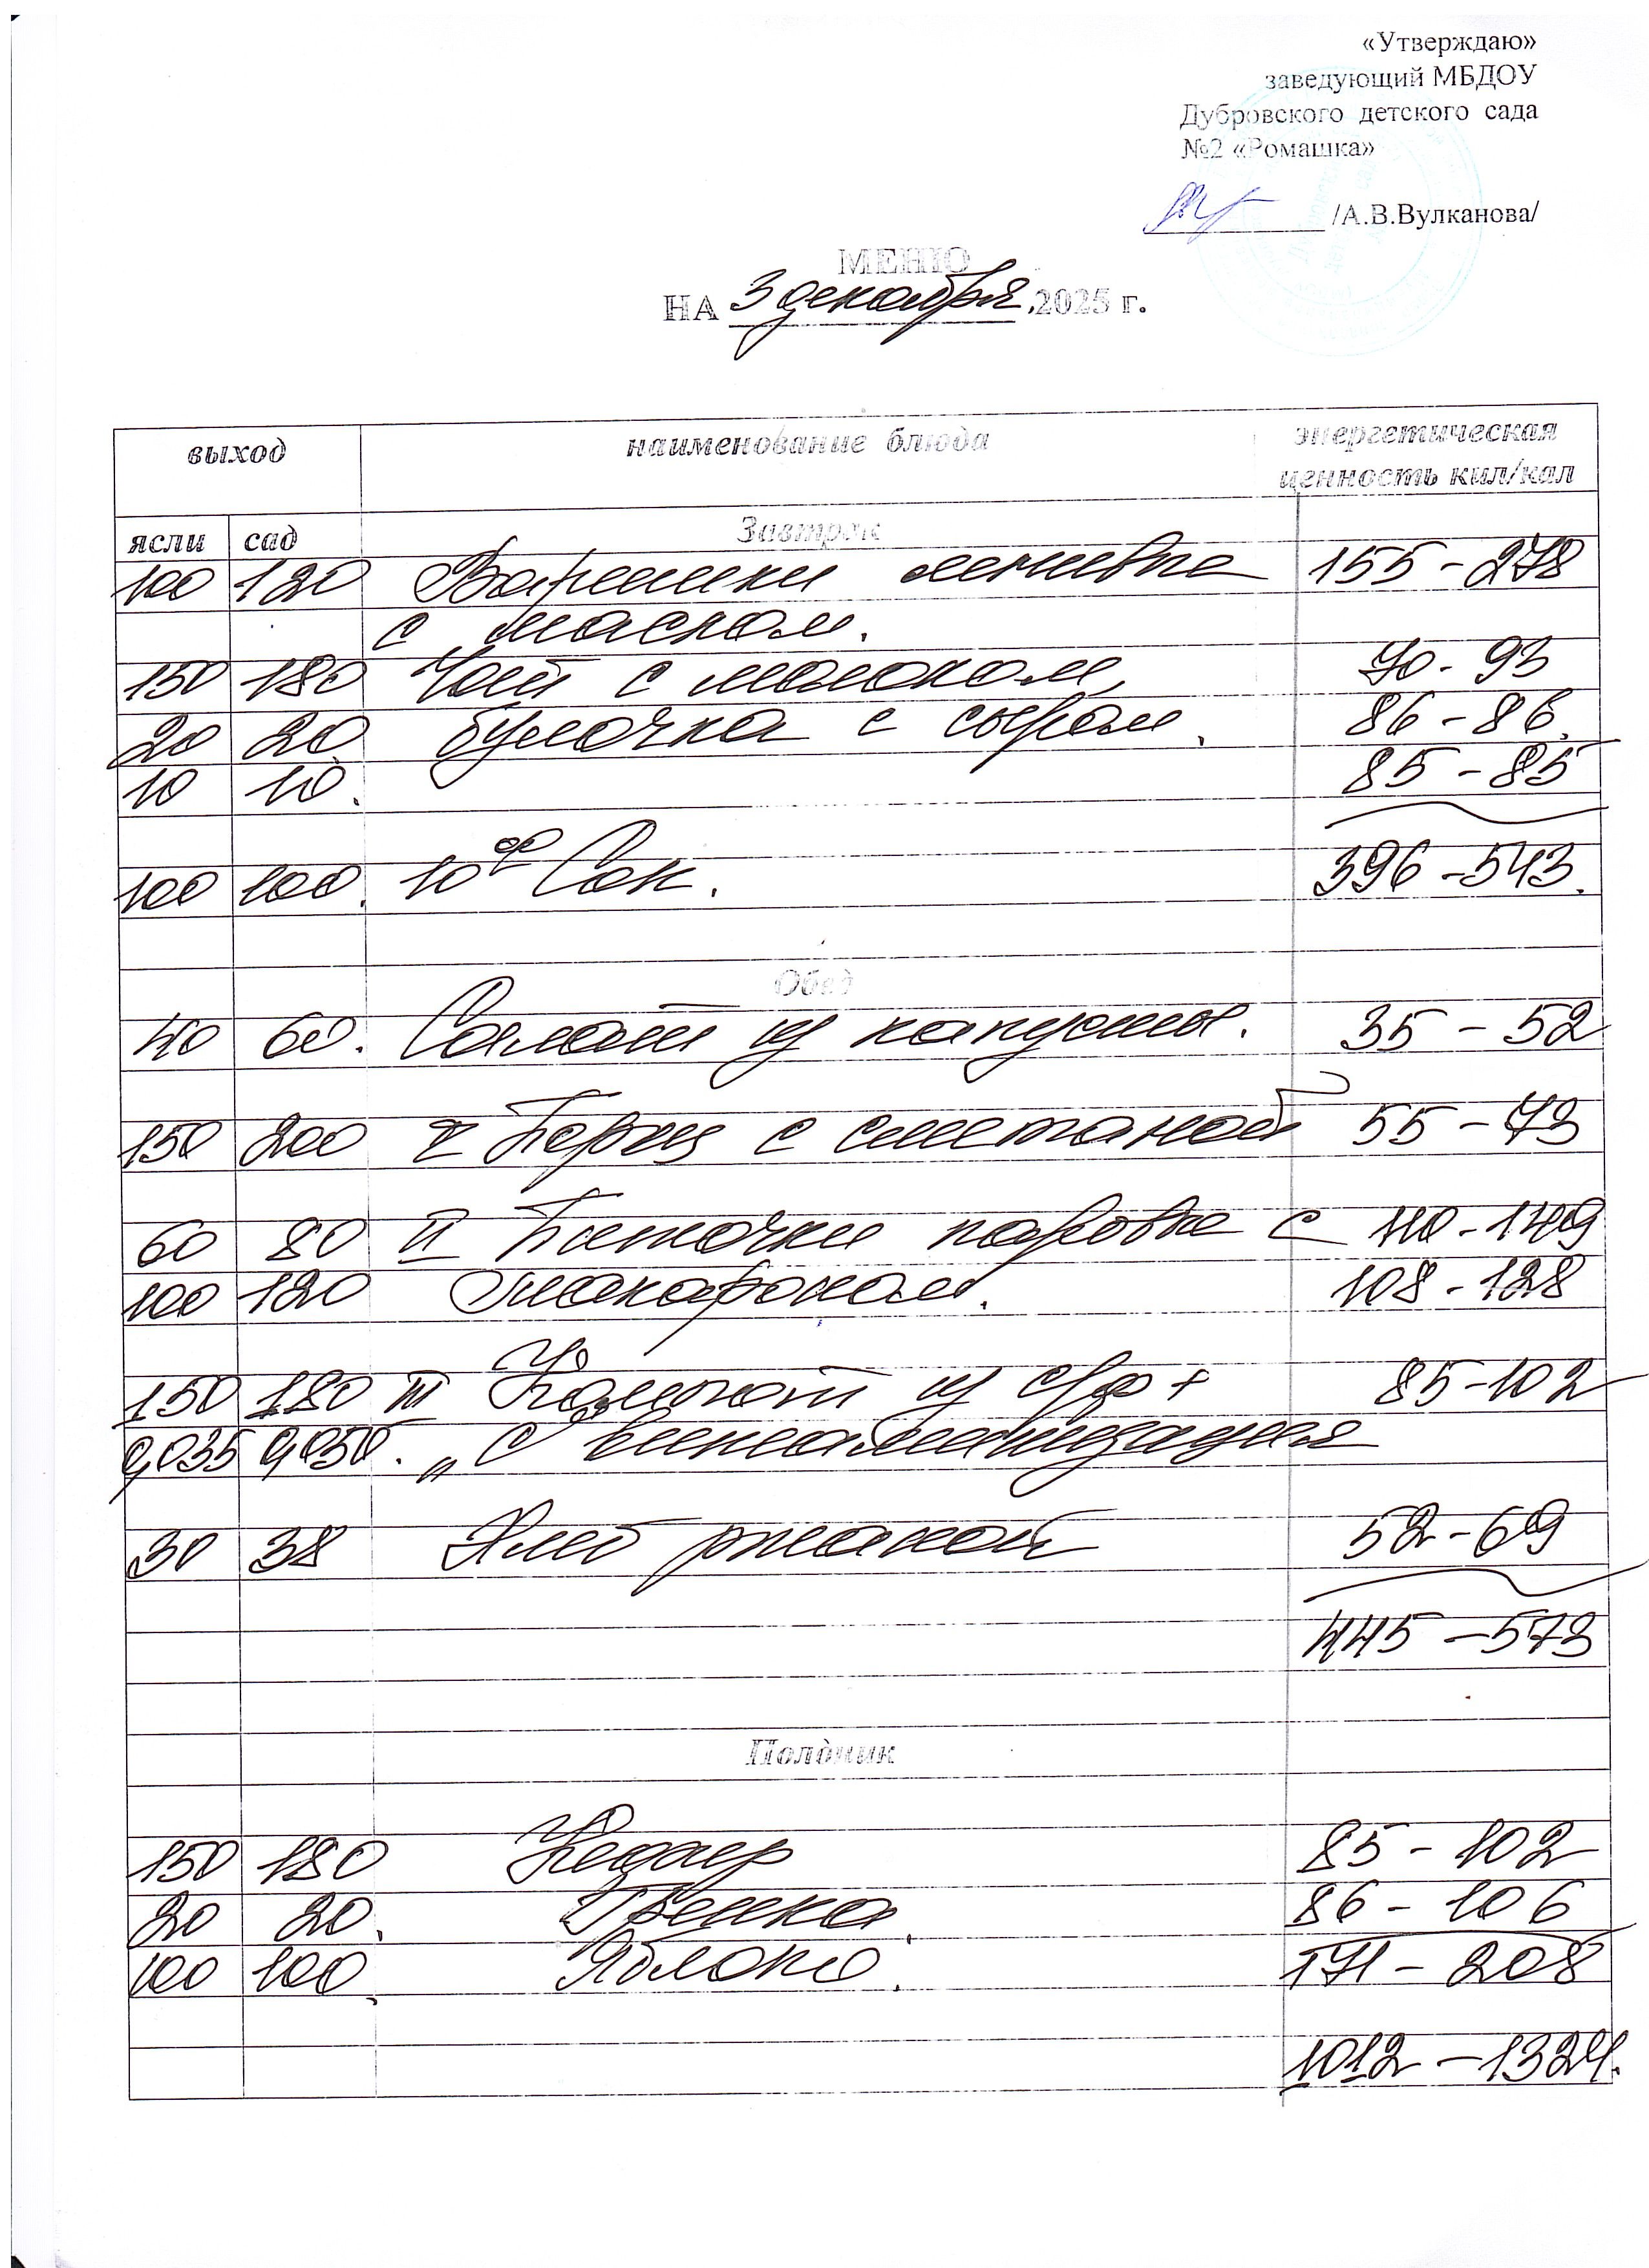 «Утверждаю»
заведующий МБДОУ
Дубровского детского сада
№2 «Ромашка»
/А.В.Вулканова/
МЕНЮ
НА 3 декабря .2025 г.
выход наименование блюда энергетическая
ценность кил/кал
ясли сад Завтрак
100 120 Вареники ленивые 155 - 278
с маслом.
150 180 Чай с молоком, 70 - 93
20 20 булочка с сыром. 86 - 86.
10 10. 85 - 85
100 100. 10 Сок. 396 - 543.
Обед
40 60. Салат из капусты. 35 - 52
150 200 I Борщ с сметаной 55 - 73
60 80 II Биточки паровые с 110 - 149
100 120 макаронам. 108 - 128
150 180 III Компот из с/ф + 85 - 102
0,035 0,050. „С" витаминизация
30 38 Хлеб ржаной 52 - 69
445 - 573
Полдник
150 180 Кефир 85 - 102
20 20. Гренка. 86 - 106
100 100. Яблоко. 171 - 208
1012 - 1324.